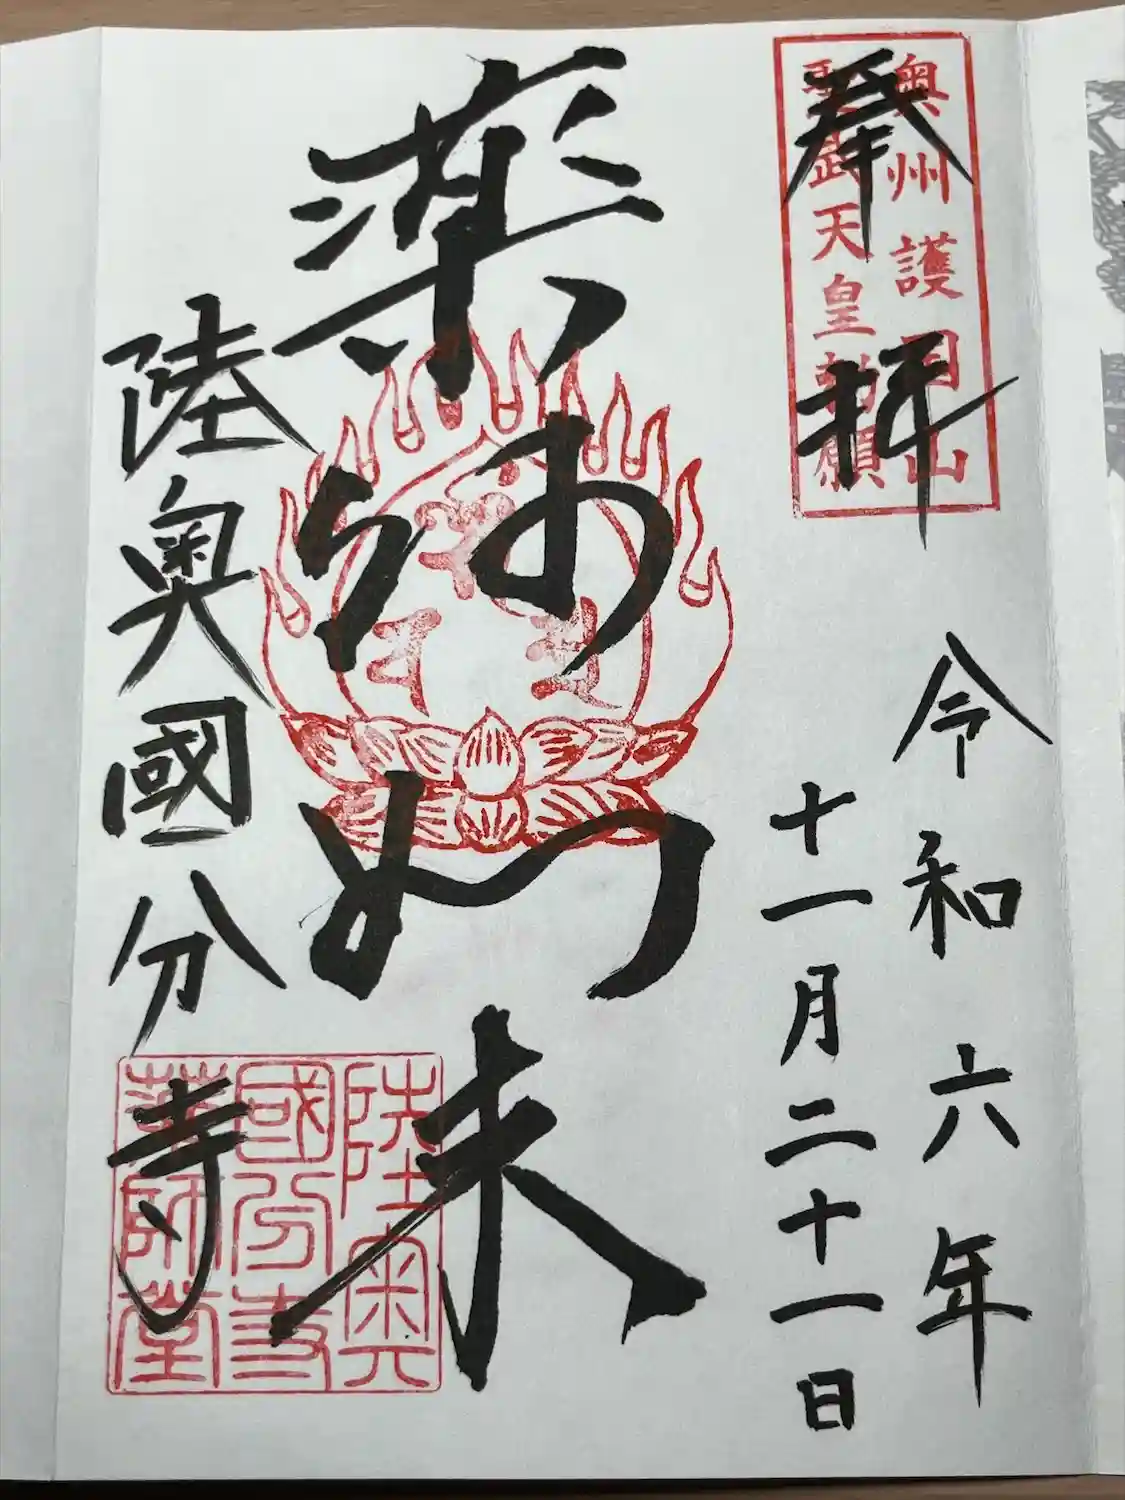 奉拝
奥州護國山
聖武天皇勅願
令和六年
十一月二十一日
薬師如来
陸奥國分寺
陸奥
國分寺
薬師堂